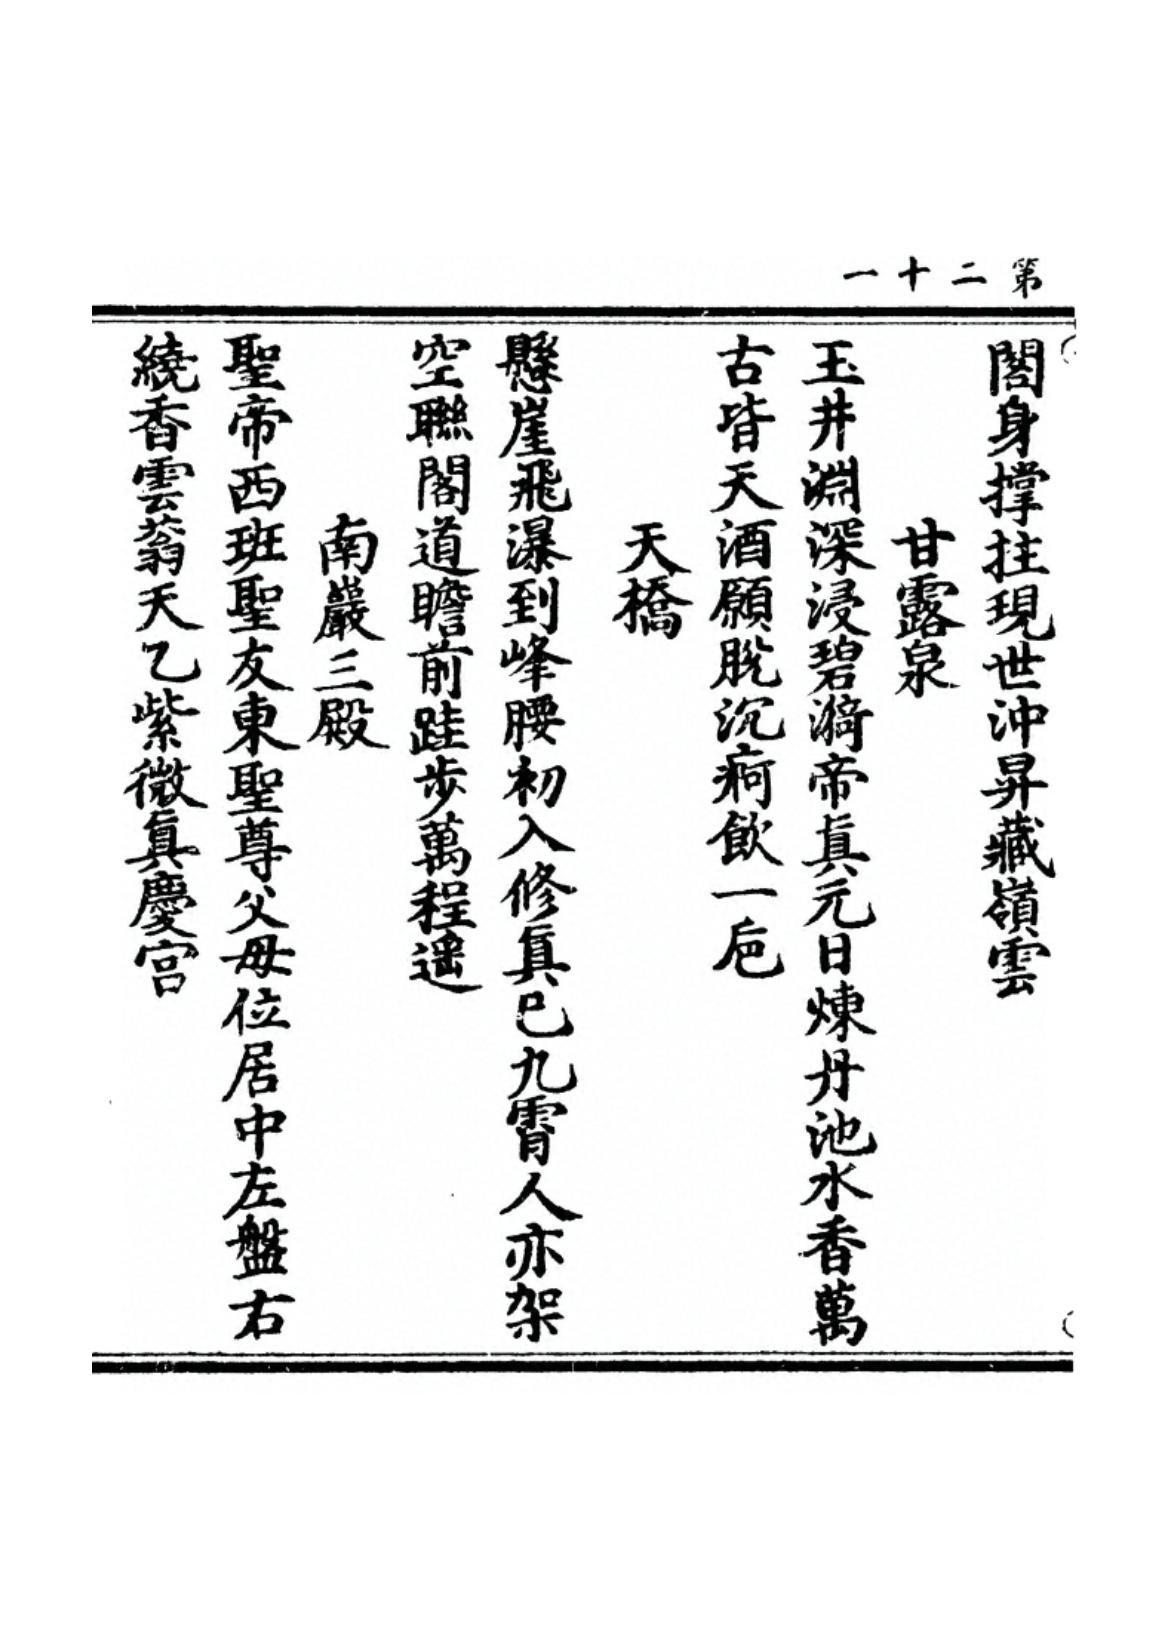 第二十一
閤身撑拄現世沖昇藏嶺雲
甘露泉
玉井淵深浸碧漪帝眞元日煉丹池水香萬
古皆天酒願脫沉痾飲一巵
天橋
懸崖飛瀑到峰腰初入修眞已九霄人亦架
空聯閣道瞻前跬步萬程遥
南巖三殿
聖帝西班聖友東聖尊父母位居中左盤右
繞香雲蓊天乙紫微眞慶宮